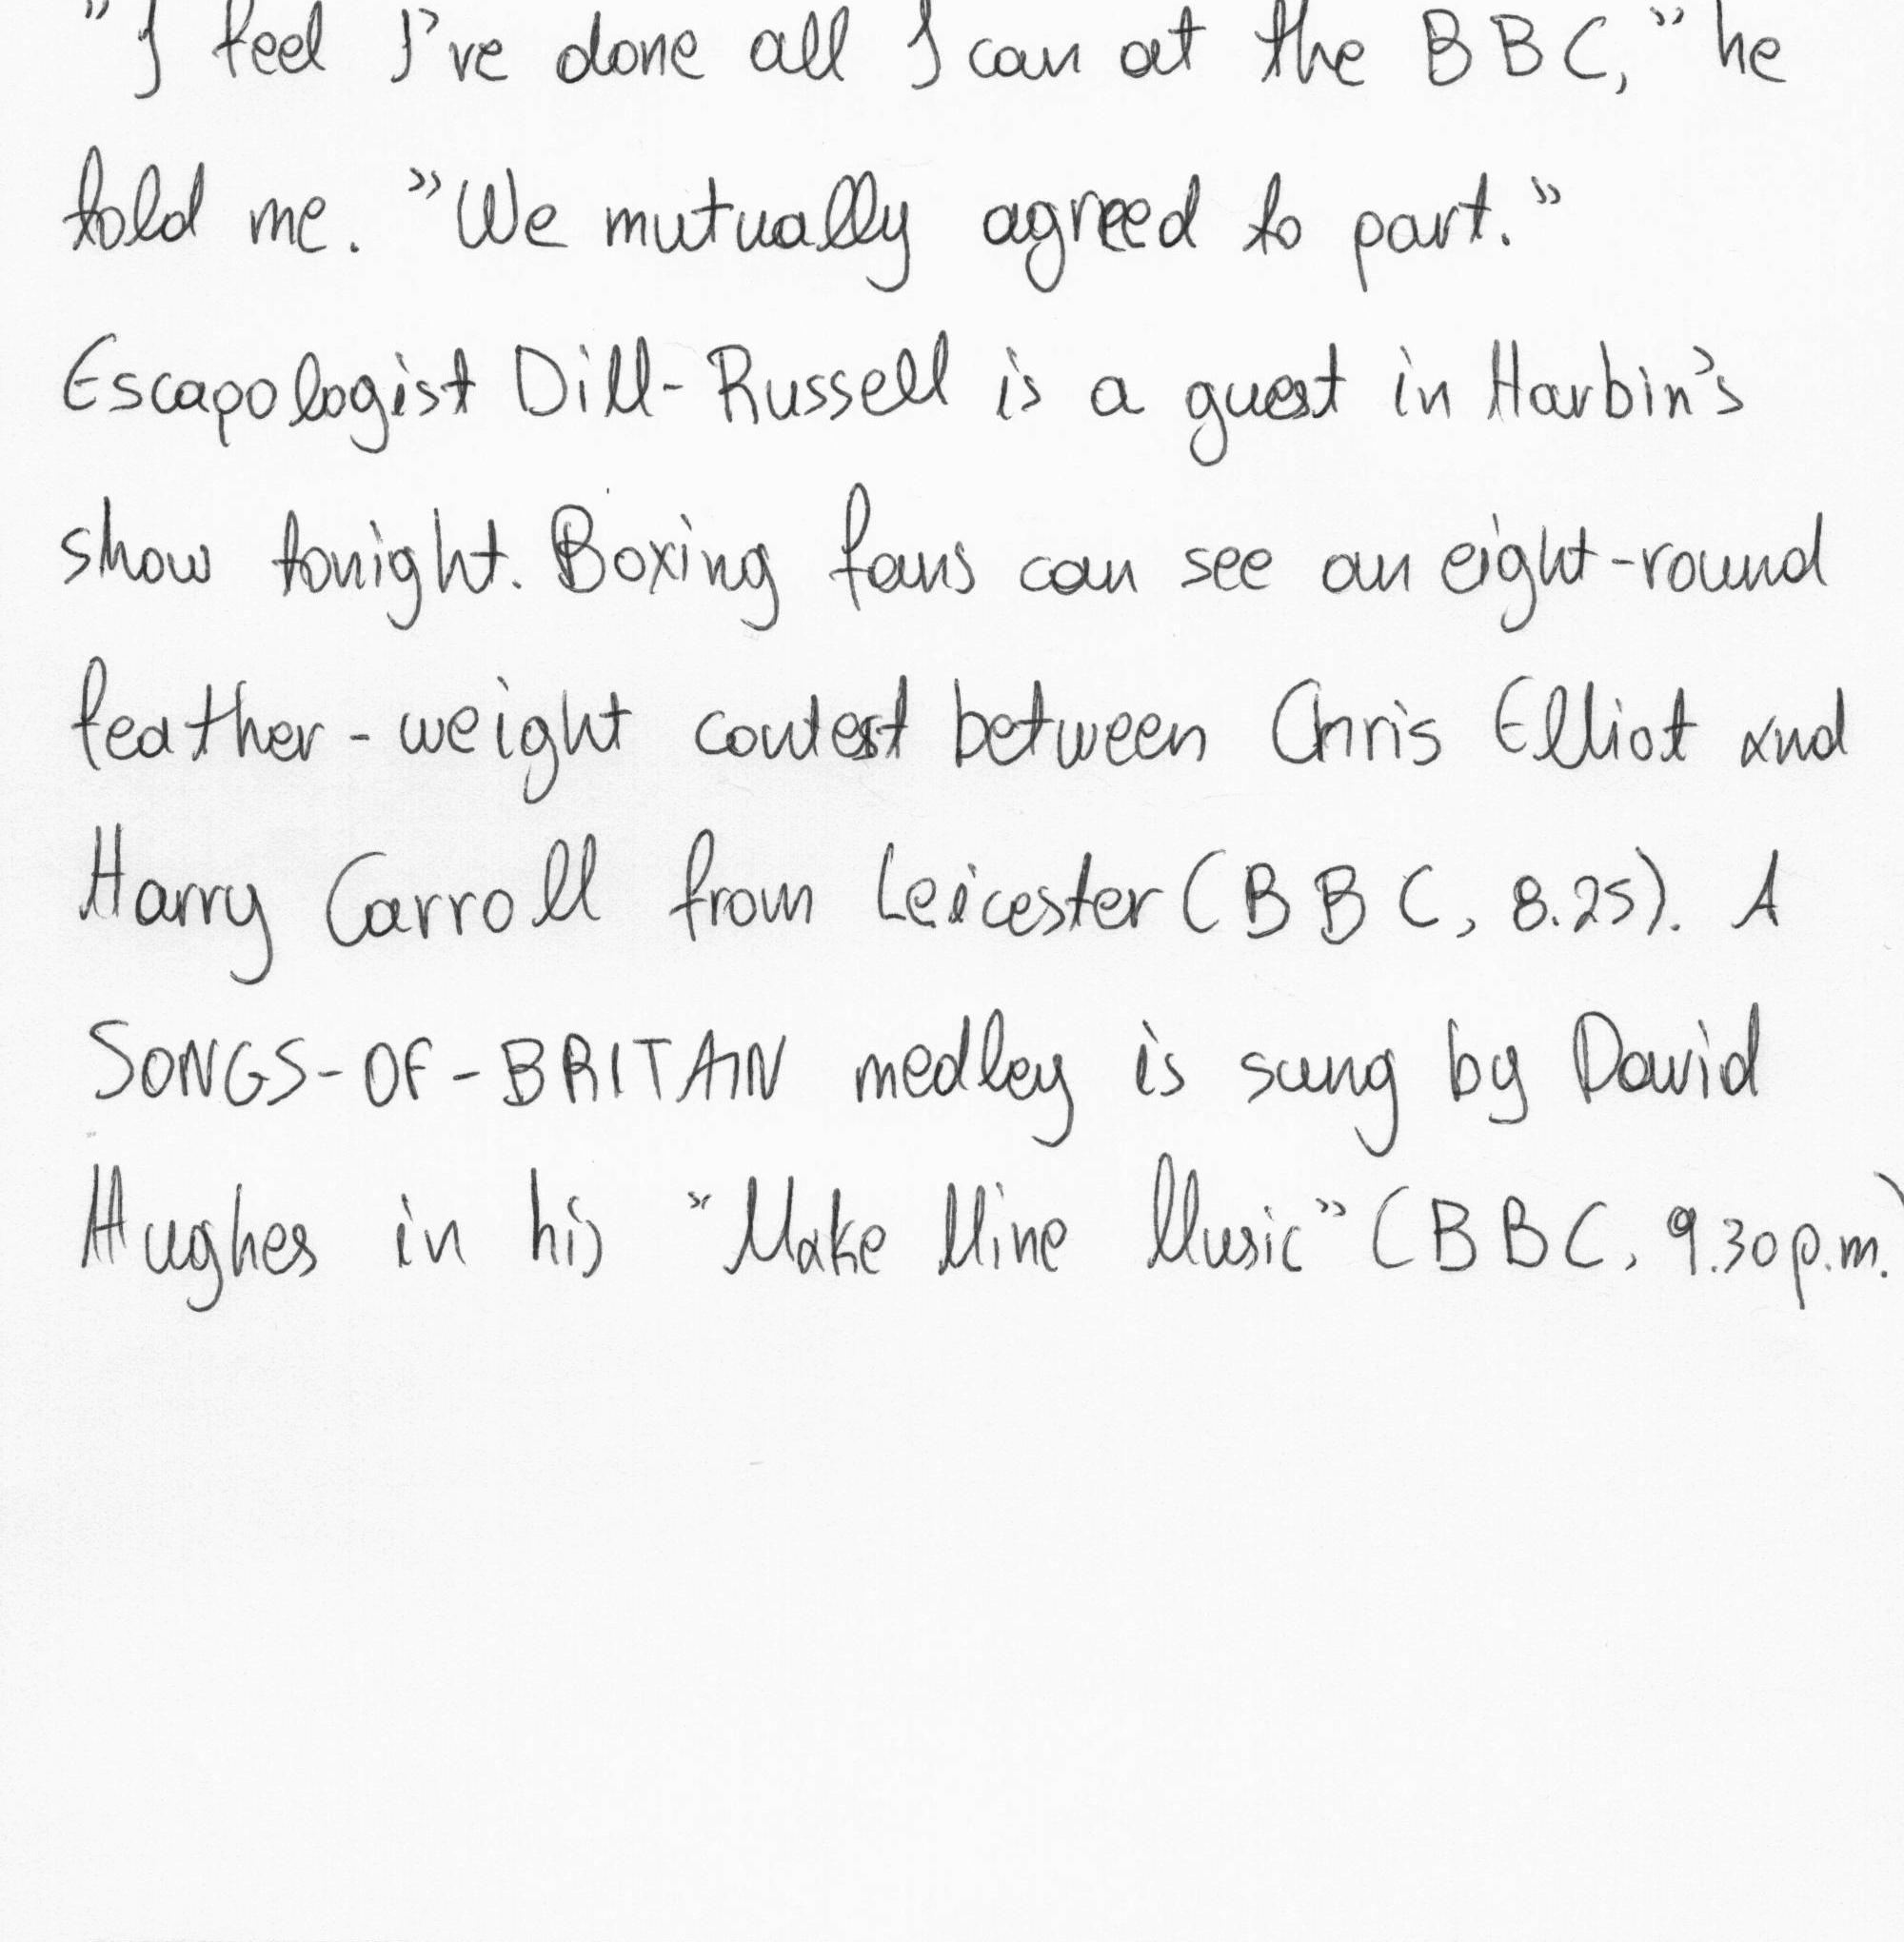 "I feel I've done all I can at the BBC," he
told me. "We mutually agreed to part."
Escapologist Dill-Russell is a guest in Harbin's
show tonight. Boxing fans can see an eight-round
feather-weight contest between Chris Elliot and
Harry Carroll from Leicester (BBC, 8.25). A
SONGS-OF-BRITAIN medley is sung by David
Hughes in his "Make Mine Music" (BBC, 9.30 p.m.)